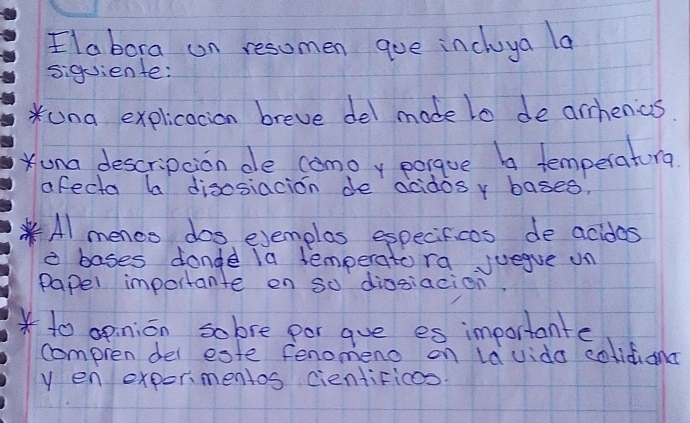 Elabora un resumen que incluya la
siguiente:
*una explicacion breve del modelo de arrhenics.
*una descripción de como y porque la temperatura
afecta la disosiación de acidos y bases.
*Al menos dos ejemplos especificos de acidos
o bases donde la temperatura juegue un
papel importante en so diosiación.
* to opinión sobre por que es importante
comprender este fenomeno en la vida cotidiana
y en experimentos cientificos.